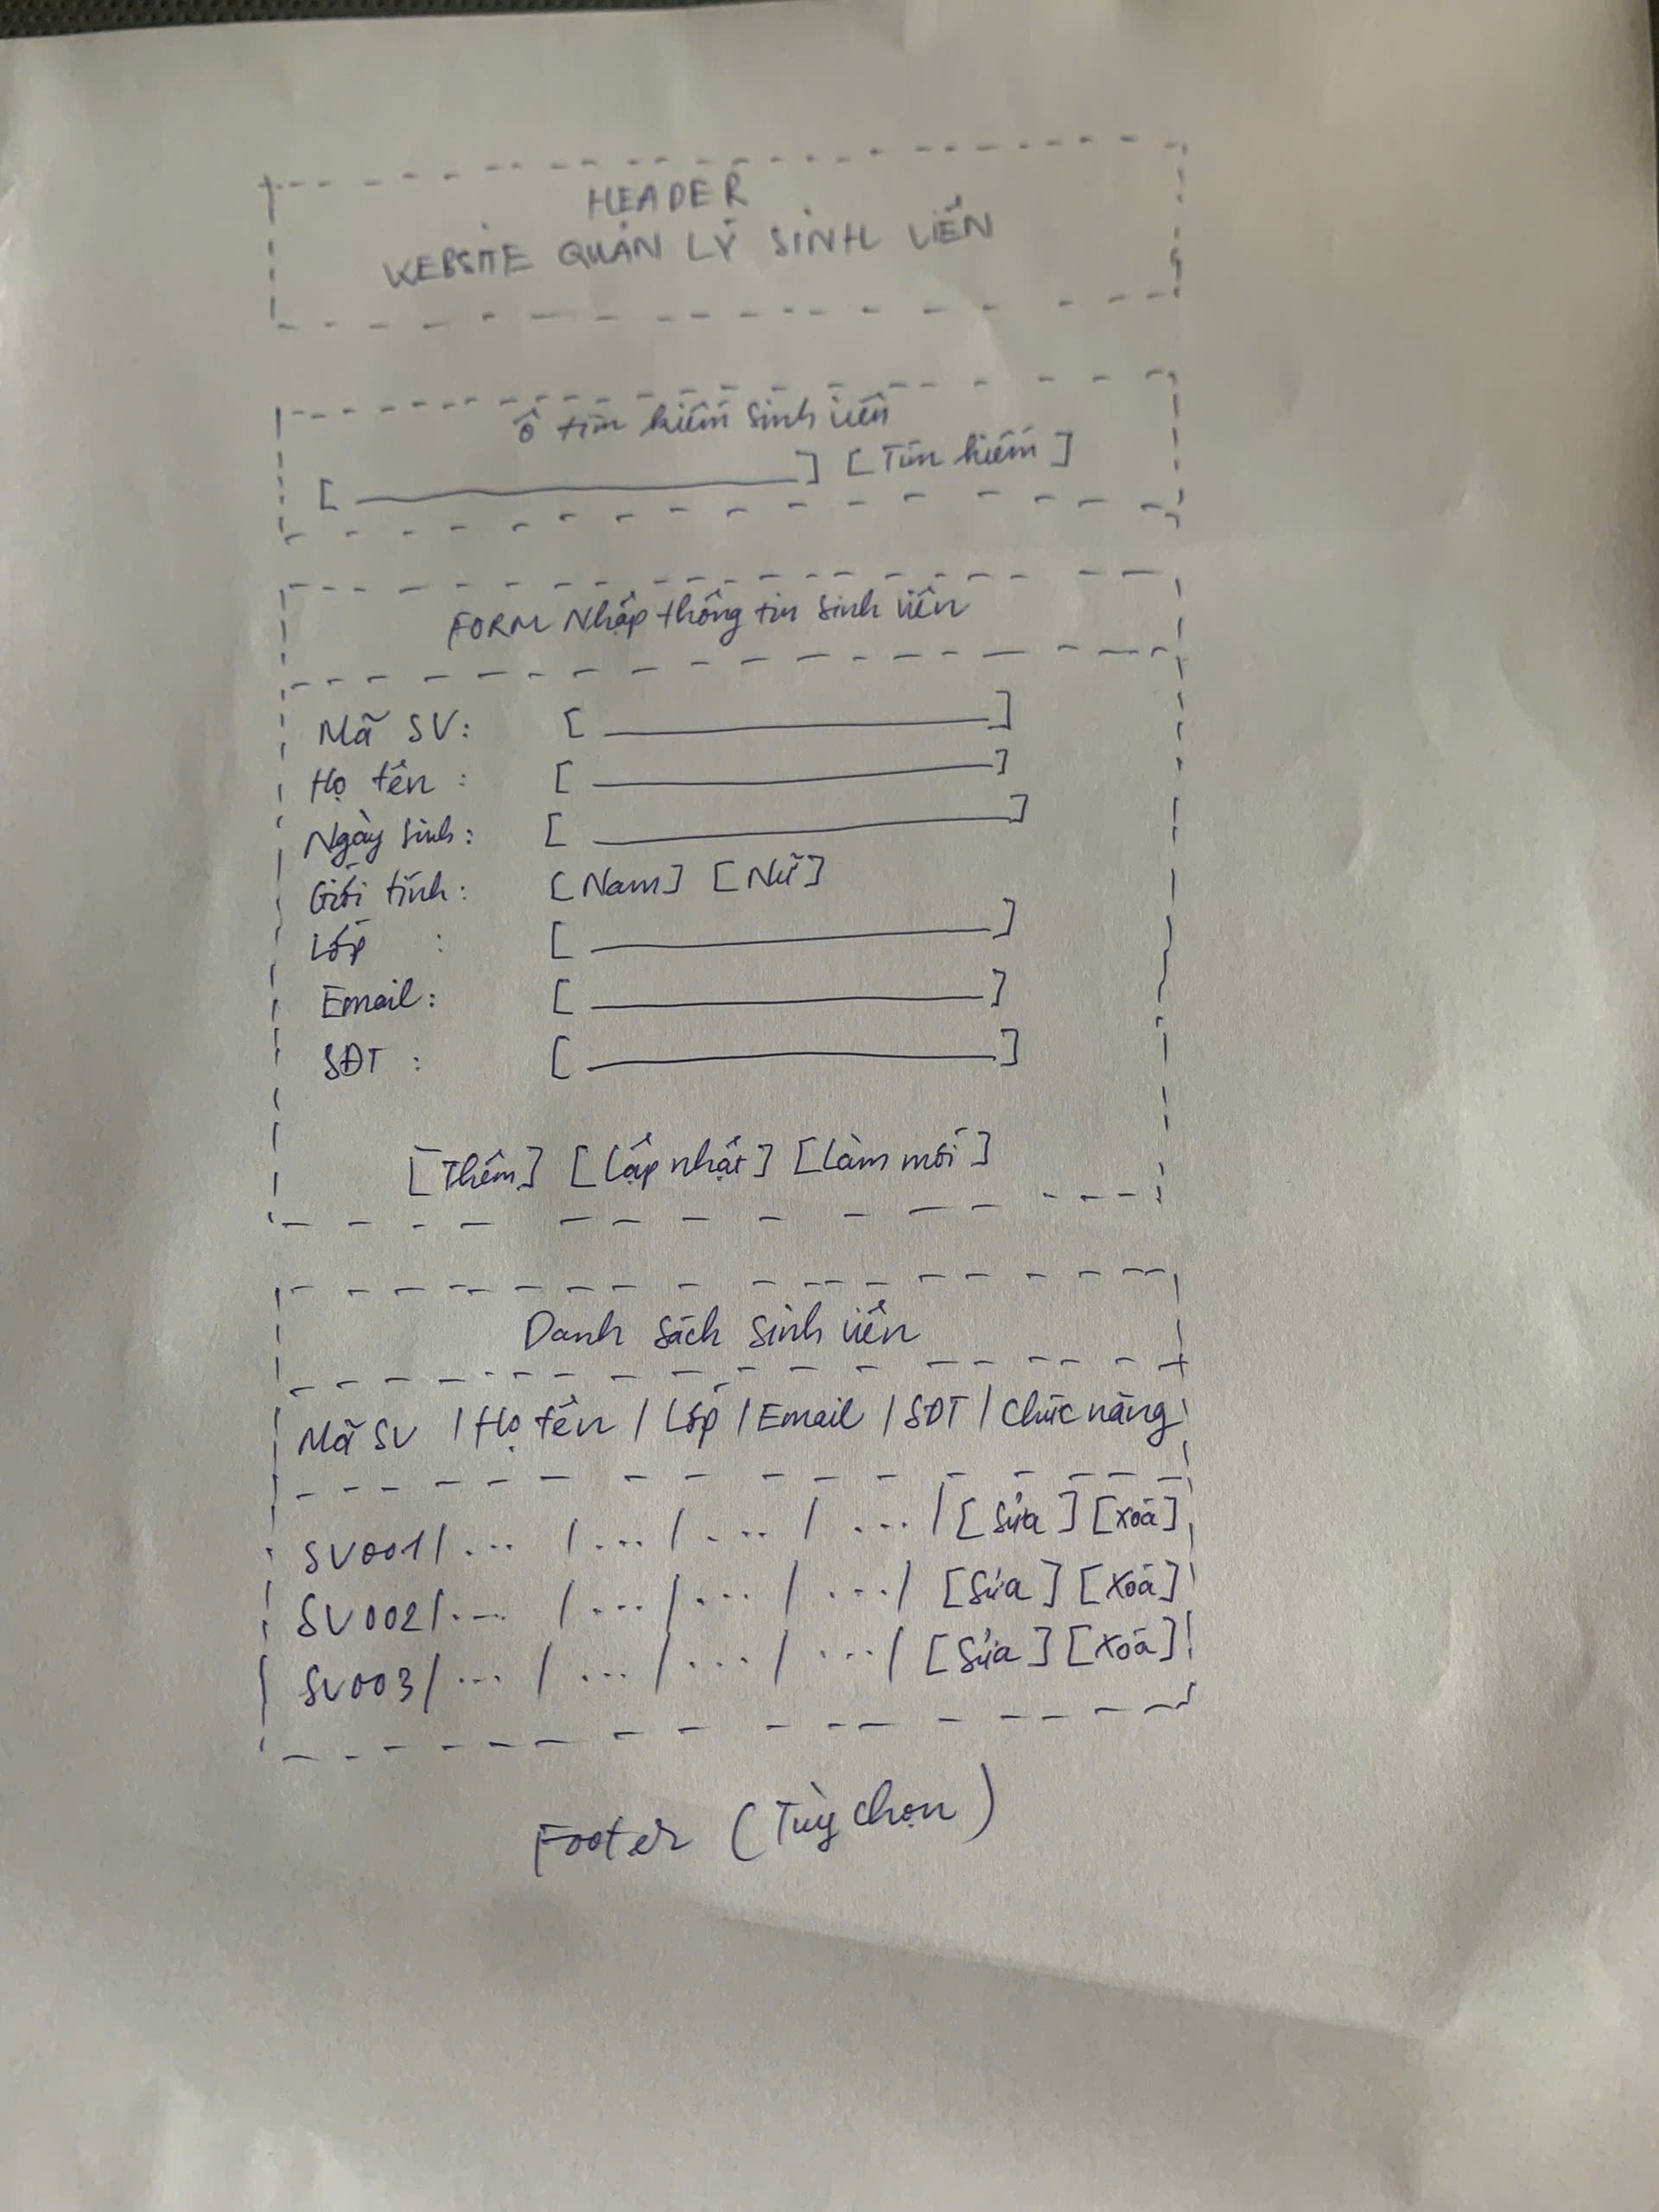 HEADER
WEBSITE QUẢN LÝ SINH VIÊN
Ô tìm kiếm sinh viên
[ ___ ] [Tìm kiếm]
FORM Nhập thông tin sinh viên
Mã SV: [ ___ ]
Họ tên : [ ___ ]
Ngày sinh: [ ___ ]
Giới tính: [Nam] [Nữ]
Lớp : [ ___ ]
Email: [ ___ ]
SĐT : [ ___ ]
[Thêm] [Cập nhật] [Làm mới]
Danh sách sinh viên
Mã SV / Họ tên / Lớp / Email / SĐT / Chức năng
SV001 / ... / ... / ... / ... / [Sửa] [Xoá]
SV002 / ... / ... / ... / ... / [Sửa] [Xoá]
SV003 / ... / ... / ... / ... / [Sửa] [Xoá]
Footer (Tùy chọn)